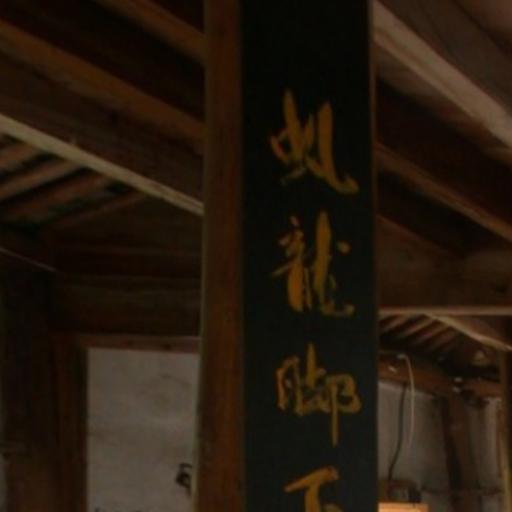 虬龍脚下